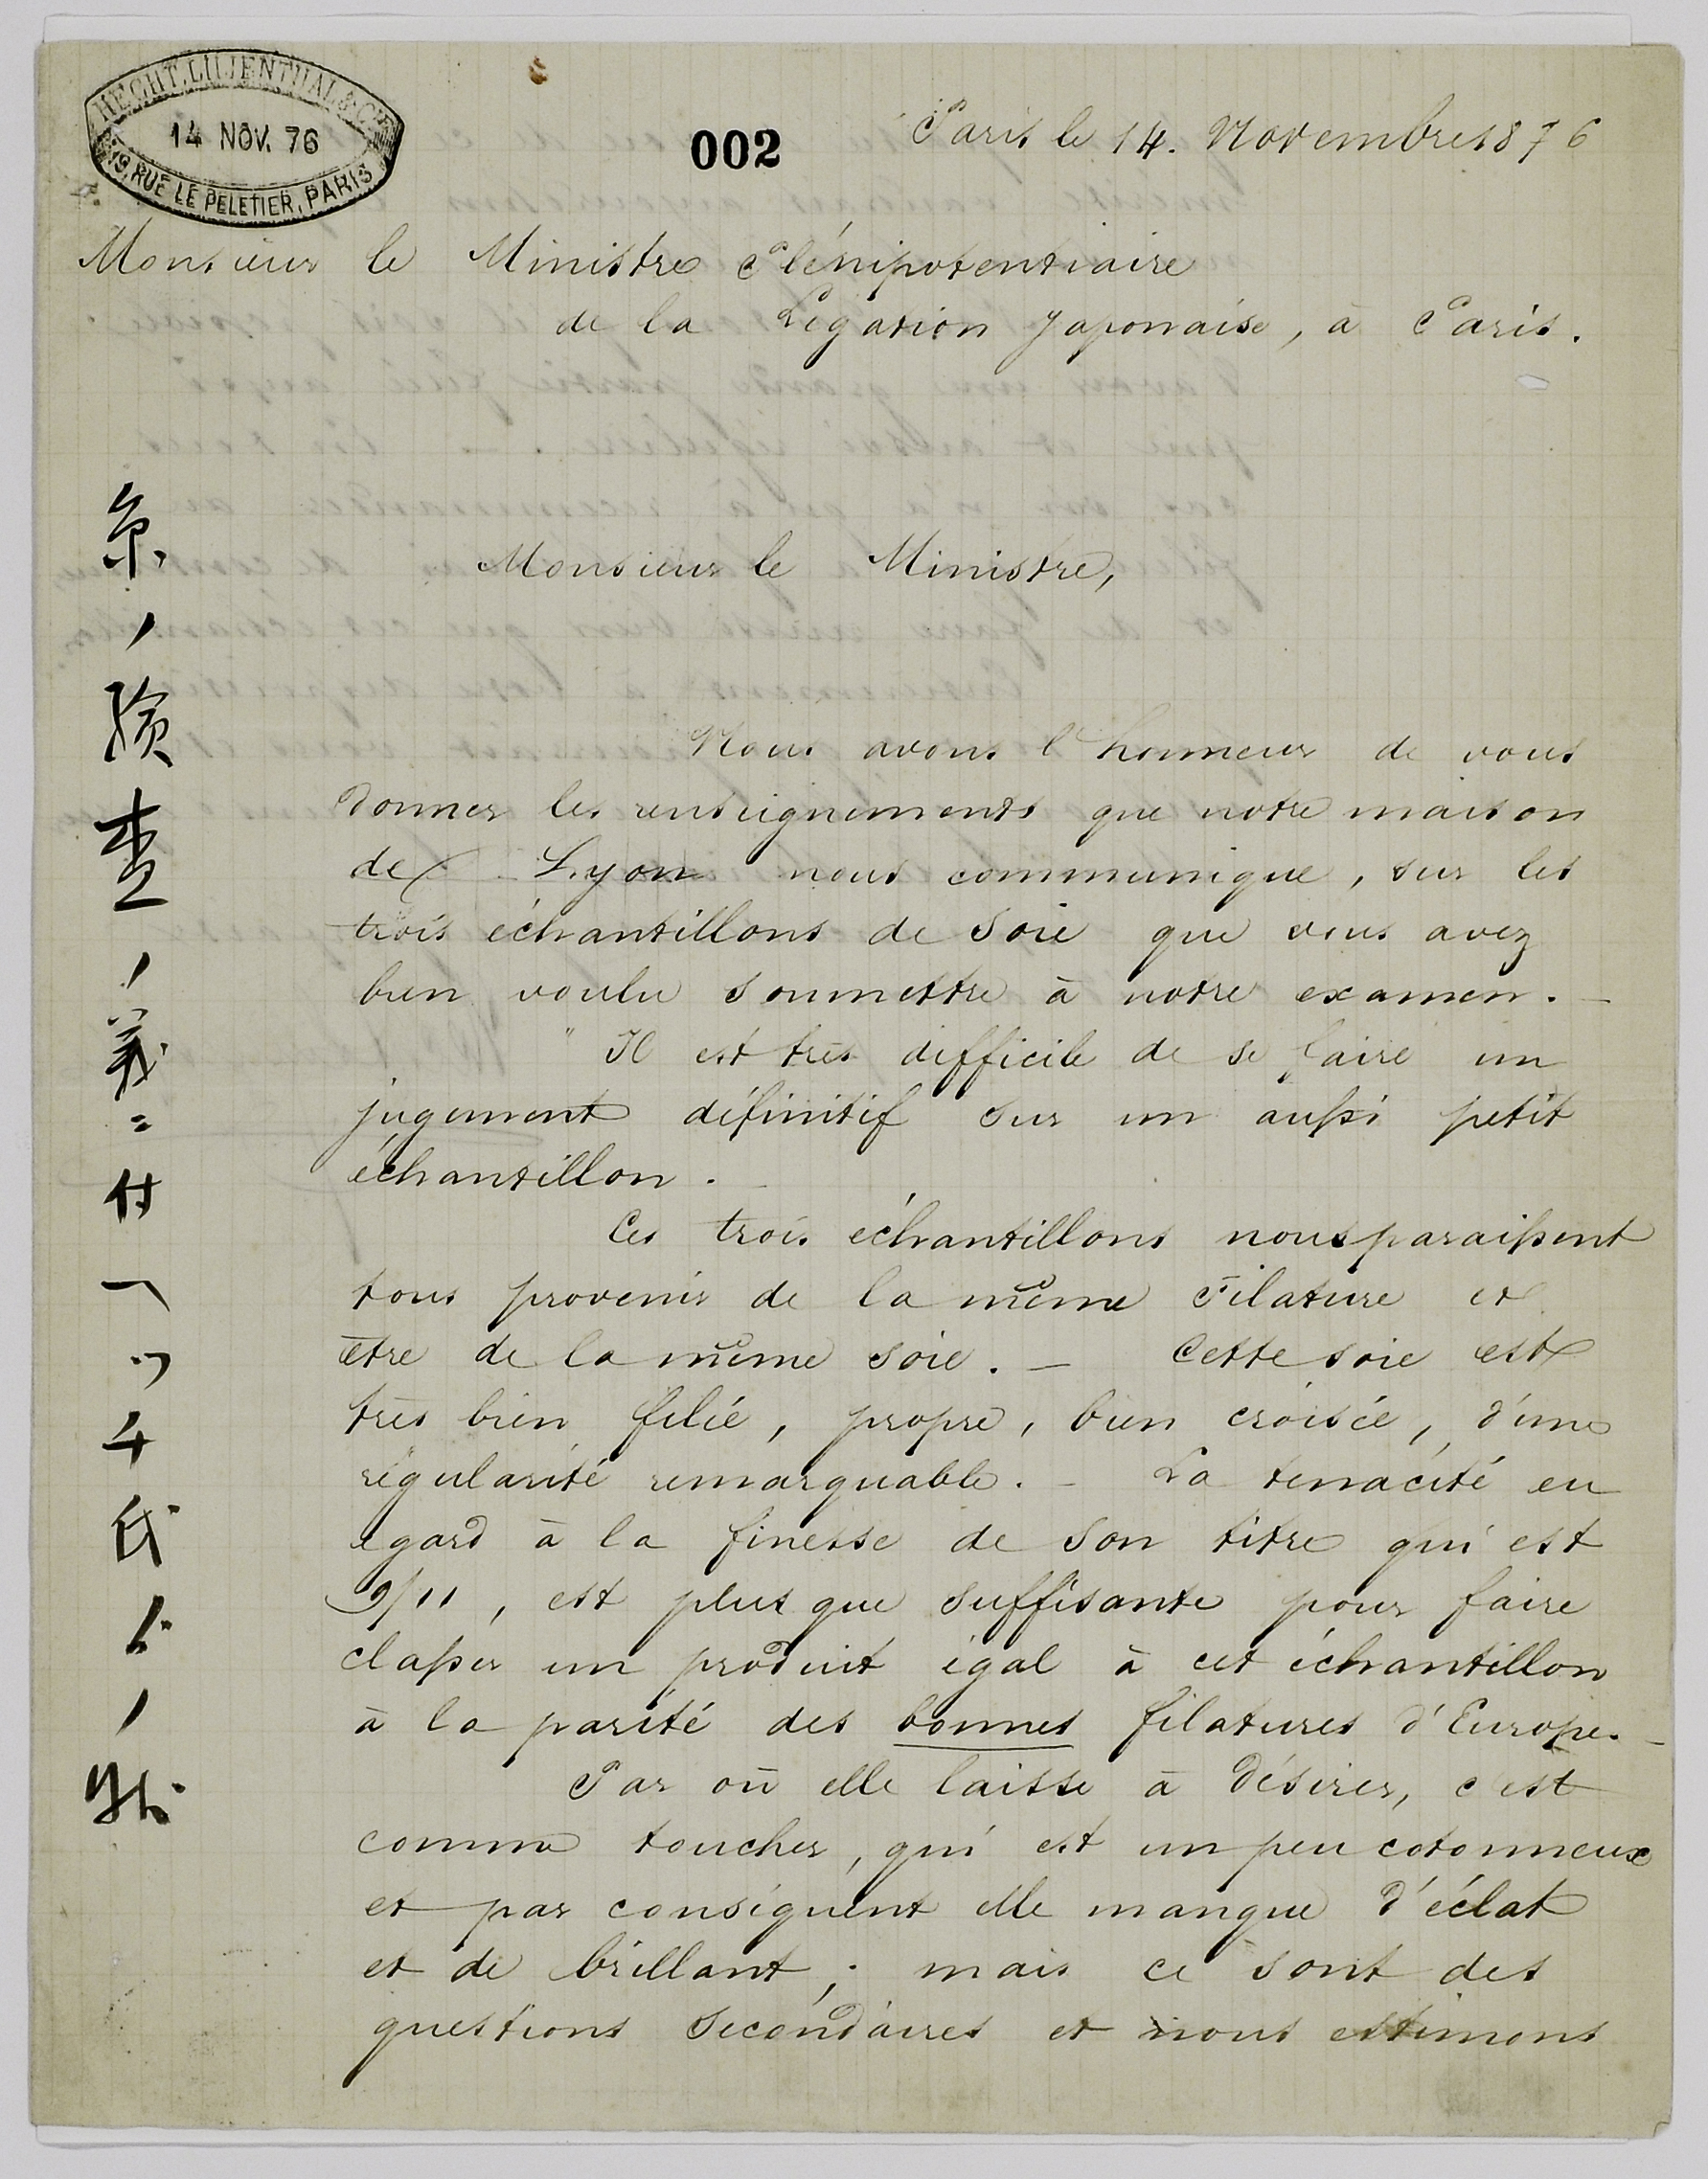 HECHT, LILIENTHAL & Cie
14 NOV. 76
19, RUE LE PELETIER, PARIS
002
Paris le 14. Novembre 1876
Monsieur le Ministre Plénipotentiaire
de la Légation Japonaise, à Paris.
Monsieur le Ministre,
Nous avons l'honneur de vous
donner les renseignements que notre maison
de Lyon nous communique, sur les
trois échantillons de soie que vous avez
bien voulu soumettre à notre examen. —
" Il est très difficile de se faire un
jugement définitif sur un aussi petit
échantillon. —
Ces trois échantillons nous paraissent
tous provenir de la même Filature et
être de la même soie. — Cette soie est
très bien filée, propre, bien croisée, d'une
régularité remarquable. — La tenacité eu
égard à la finesse de son titre qui est
9/11, est plus que suffisante pour faire
classer un produit égal à cet échantillon
à la parité des bonnes filatures d'Europe. —
Par où elle laisse à désirer, c'est
comme toucher, qui est un peu cotonneux
et par conséquent elle manque d'éclat
et de brillant; mais ce sont des
questions secondaires et nous estimons
糸ノ検査ノ義ニ付ヘツチ氏ノ